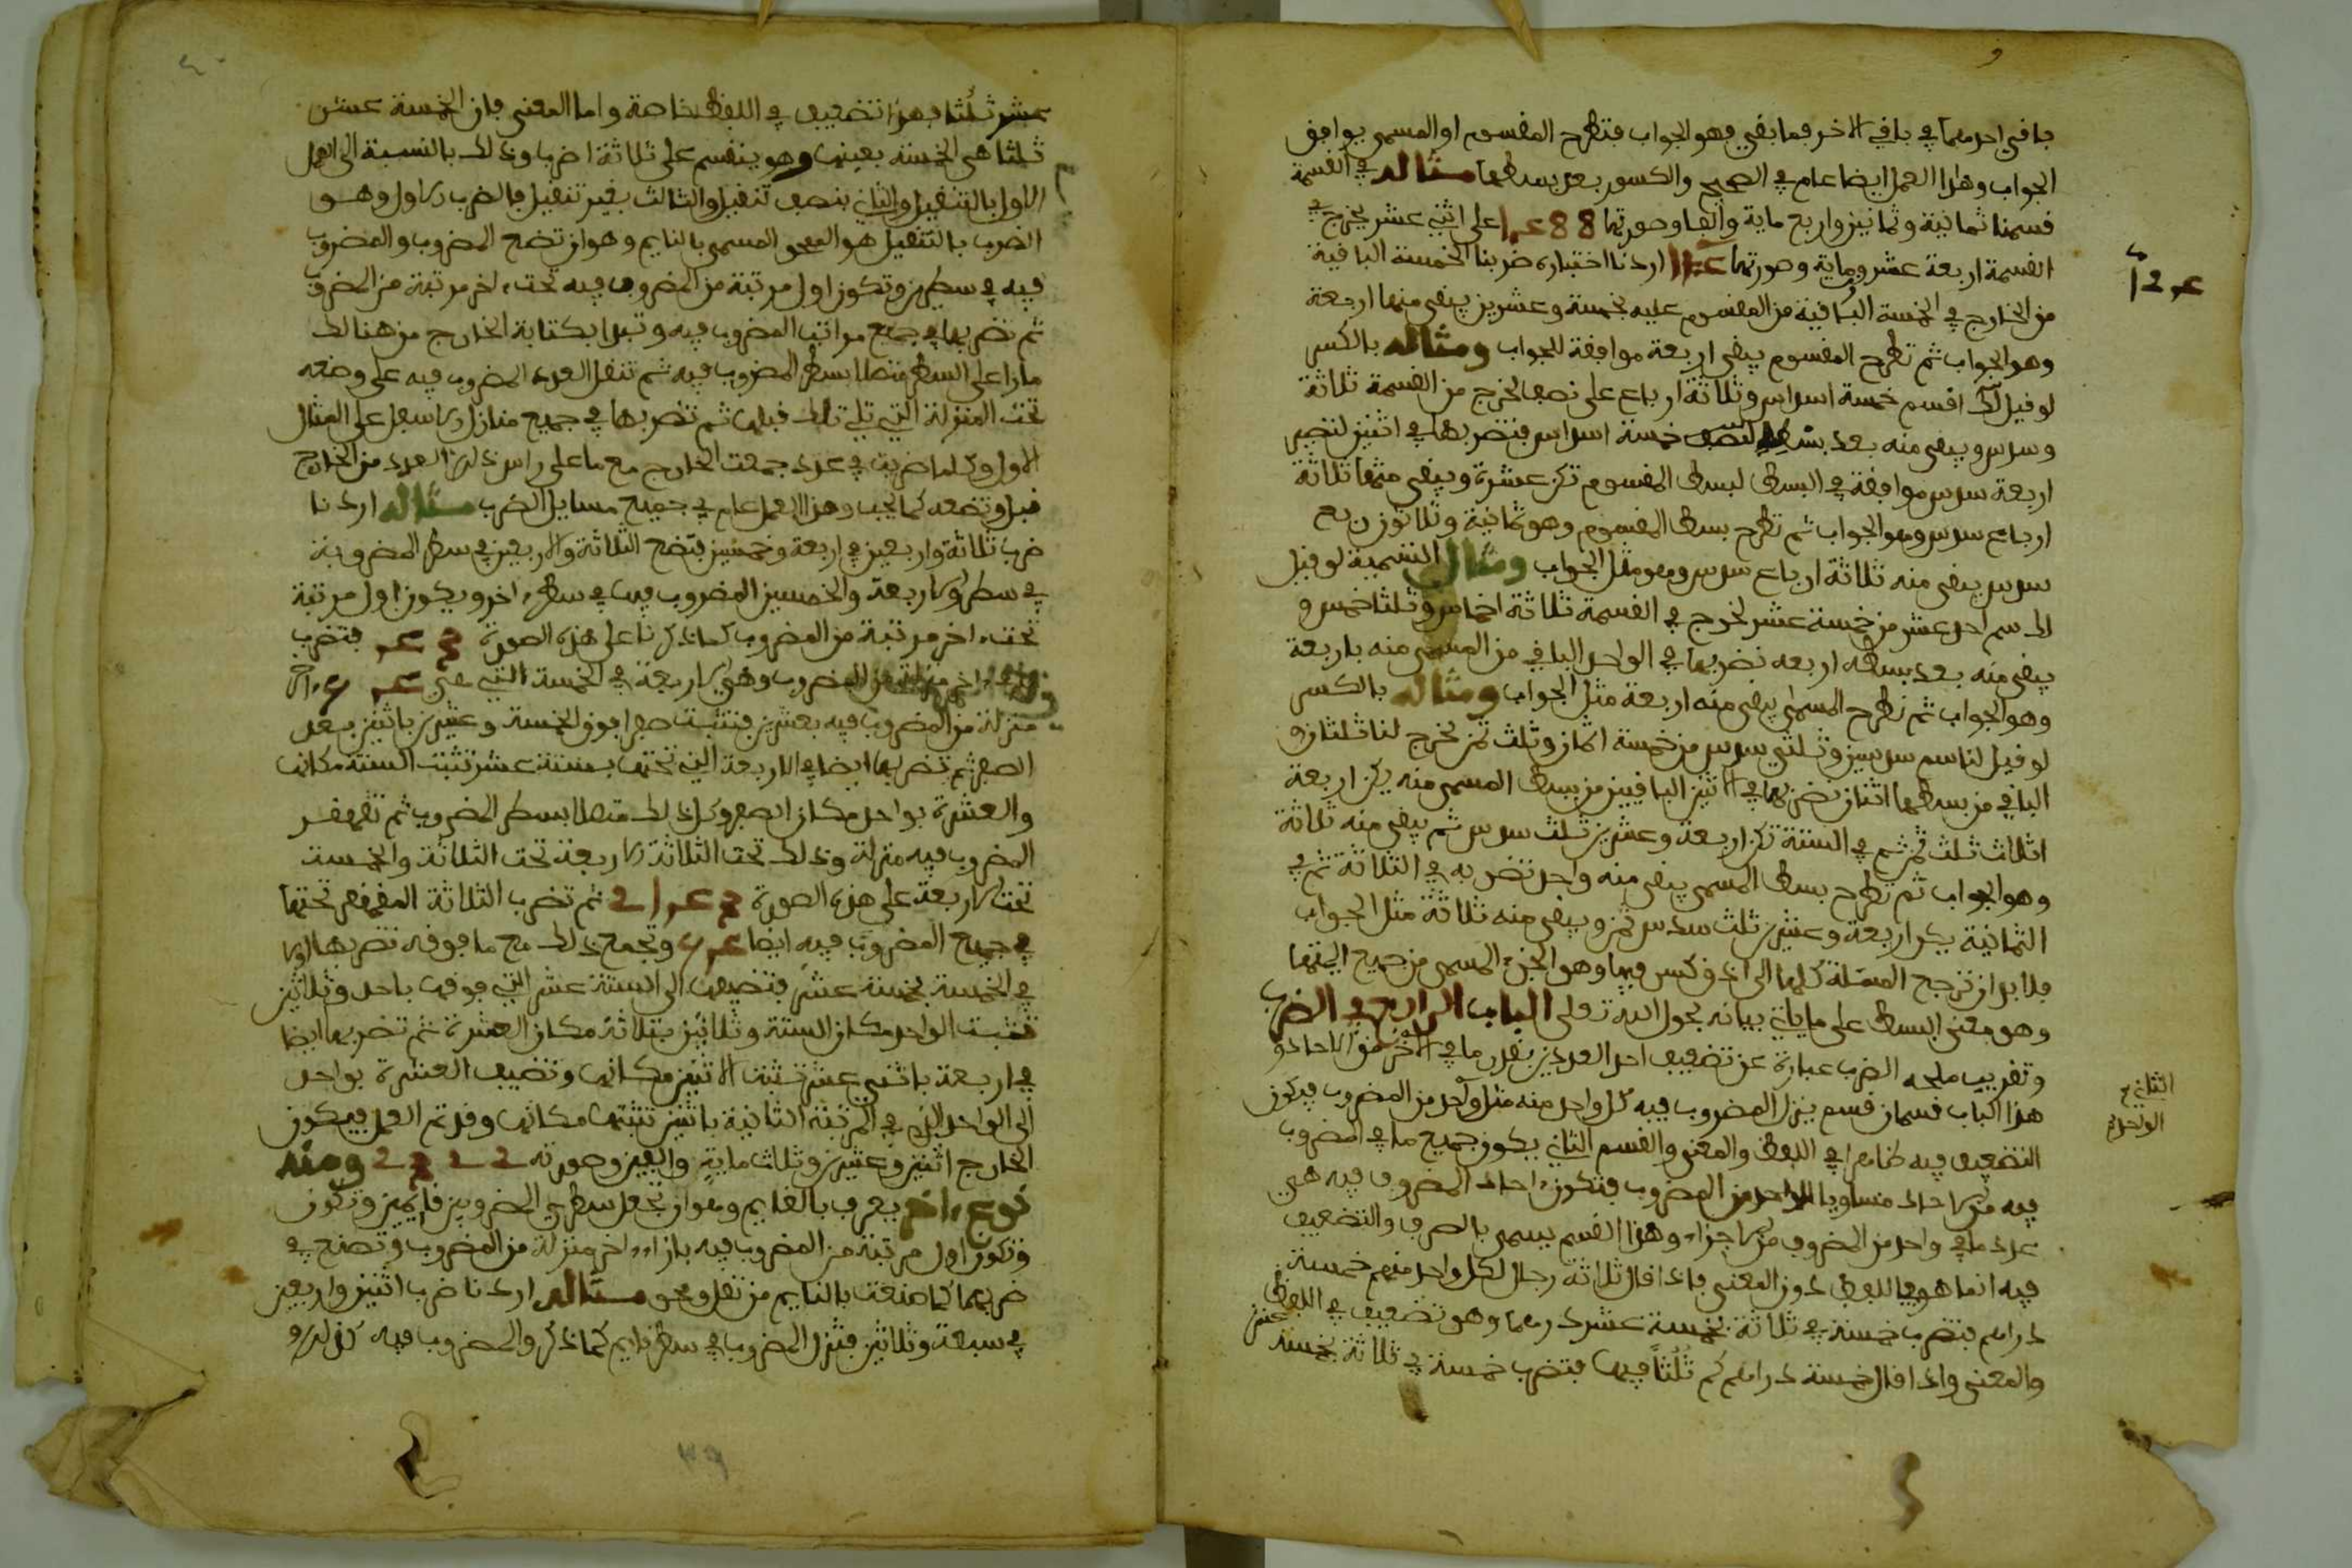 باقي احدهما في باقي الاخر فما بقي فهو الجواب فتطرح المقسوم او المسمى يوافق
الجواب وهذا العمل ايضا عام في الصحيح والكسور بعد بسطهما مثاله في القسمة
قسمنا ثمانية وثمانين واربع ماية والفا وصورتها على اثني عشر يخرج في
القسمة اربعة عشرون وماية وصورتها اردنا اختباره ضربنا الخمسة الباقية
من الخارج في الخمسة الباقية من المقسوم عليه بخمسة وعشرين يبقى منها اربعة
وهو الجواب ثم تطرح المقسوم يبقى اربعة موافقة للجواب ومثاله بالكسر
لو قيل لك اقسم خمسة اسداس وثلاثة ارباع على نصف لخرج من القسمة ثلاثة
وسدس ويبقى منه بعد خمسة اسداس فتضربها في اثنين لتصير
اربعة سدس موافقة في البسط لبسط المقسوم تكن عشرة ويبقى منها ثلاثة
ارباع سدس وهو الجواب ثم تطرح بسط المقسوم وهو ثمانية وثلاثون ربع
سدس يبقى منه ثلاثة ارباع سدس وهو مثل الجواب ومثال التسمية لو قيل
لك سم احد عشر من خمسة عشر لخرج في القسمة ثلاثة اخماس وثلثا خمس و
يبقى منه بعد بسطه اربعة نضربها في الواحد الباقي من المسمى منه باربعة
وهو الجواب ثم نطرح المسمى يبقى منه اربعة مثل الجواب ومثاله بالكسر
لو قيل لنا سم سدسين وثلثي سدس من خمسة اثمان وثلث ثمن يخرج لنا ثلثان و
الباقي من بسطهما اثنان نضربهما في الاثنين الباقيين من بسط المسمى منه يكن اربعة
اثلاث ثلث ثم في الستة تكن اربعة وعشرين ثلث سدس ثم يبقى منه ثلاثة
وهو الجواب ثم نطرح بسط المسمى يبقى منه واحد نضربه في الثلاثة ثم في
الثمانية يكن اربعة وعشرين ثلث سدس ثمن ويبقى منه ثلاثة مثل الجواب
فلا بد ان ترجع المسئلة كلها الى ادق كسر فيها وهو الجزء المسمى من جميع ايمتها
وهو معنى البسط على ما ياتي بيانه بحول الله تعلى الباب الرابع في الضرب
وتقريب ملحه الضرب عبارة عن تضعيف احد العددين بقدر ما في الاخر من الاحاد و
هذا الباب قسمان قسم ينزل المضروب فيه كل واحد منه مثل واحد من المضروب فيكون
التضعيف فيه ظاهرا في اللفظ والمعنى والقسم الثاني يكون جميع ما في المضروب
فيه من الاحاد متساويا الواحد من المضروب فتكون احاد المضروب فيه هي
عدد ما في واحد من المضروب من الاجزاء وهذا القسم يسمى بالصرف والتضعيف
فيه انما هو في اللفظ دون المعنى فاذا قال ثلاثة رجال لكل واحد منهم خمسة
دراهم فتضرب خمسة في ثلاثة بخمسة عشر درهما وهو تضعيف في اللفظ
والمعنى واذا قال خمسة دراهم كم ثلثا فيها فتضرب خمسة في ثلاثة بخمسة عشر
الثاني
الواحد
عشر ثلثا فهذا تضعيف في اللفظ خاصة واما المعنى فان الخمسة عشر
ثلثا هي الخمسة بعينها وهو ينقسم على ثلاثة اضرب وذلك بالنسبة الى العمل
الاول بالتنقيل والثاني بنصف تنقيل والثالث بغير تنقيل فالضرب الاول وهو
الضرب بالتنقيل هو المحو المسمى بالنايم وهو ان تضع المضروب والمضروب
فيه في سطرين وتكون اول مرتبة من المضروب فيه تحت اخر مرتبة من المضروب
ثم تضربها في جميع مراتب المضروب فيه وتبدا بكتابة الخارج من هنالك
مارا على السطر متصلا بسطر المضروب فيه ثم تنقل العدد المضروب فيه على وضعه
تحت المنزلة التي تلي تلك قبلها ثم تضربها في جميع منازل الاسفل على المثال
الاول وكلما ضربت في عدد جمعت الخارج مع ما على راس ذلك العدد من الخارج
قبل وتضعه كما يجب وهذا العمل عام في جميع مسايل الضرب مثاله اردنا
ضرب ثلاثة واربعين في اربعة وخمسين فتضع الثلاثة والاربعين في سطر المضروبة
في سطر والاربعة والخمسين المضروب فيها في سطر اخر ويكون اول مرتبة
تحت اخر مرتبة من المضروب كما ذكرنا على هذه الصورة فتضرب
اخر منزلة من المضروب وهي الاربعة في الخمسة التي هي اخر
منزلة من المضروب فيه بعشرين فتثبت صفرا فوق الخمسة وعشرين باثنين بعد
الصفر ثم تضربها ايضا في الاربعة التي تحتها بستة عشر تثبت الستة مكانها
والعشرة بواحد مكان الصفر وكل ذلك متصلا بسطر المضروب ثم تقهقر
المضروب فيه منزلة وذلك تحت الثلاثة الاربعة تحت الثلاثة والخمسة
تحت الاربعة على هذه الصورة ثم تضرب الثلاثة المقهقر تحتها
في جميع المضروب فيه ايضا وتجمع ذلك مع ما فوقه تضربها اولا
في الخمسة بخمسة عشر فتضيفها الى الستة عشر التي فوقها باحد وثلاثين
تثبت الواحد مكان الستة وثلاثين بثلاثة مكان العشرة ثم تضربها ايضا
في اربعة باثني عشر تثبت الاثنين مكانها وتضيف العشرة بواحد
الى الواحد الذي في المرتبة الثانية باثنين تثبتها مكانها وقد تم العمل فيكون
الخارج اثنين وعشرين وثلاث ماية والفين وصورته 2 2 3 2 ومنه
نوع اخر يعرف بالقايم وهو ان تجعل سطري المضروبين قايمين وتكون
وتكون اول مرتبة من المضروب فيه بازاء اخر منزلة من المضروب وتصنع في
ضربهما كما صنعت بالنايم من نقل ومحو مثاله اردنا ضرب اثنين واربعين
في سبعة وثلاثين فتنزل المضروب في سطر قايم كما ذكر والمضروب فيه كذلك و